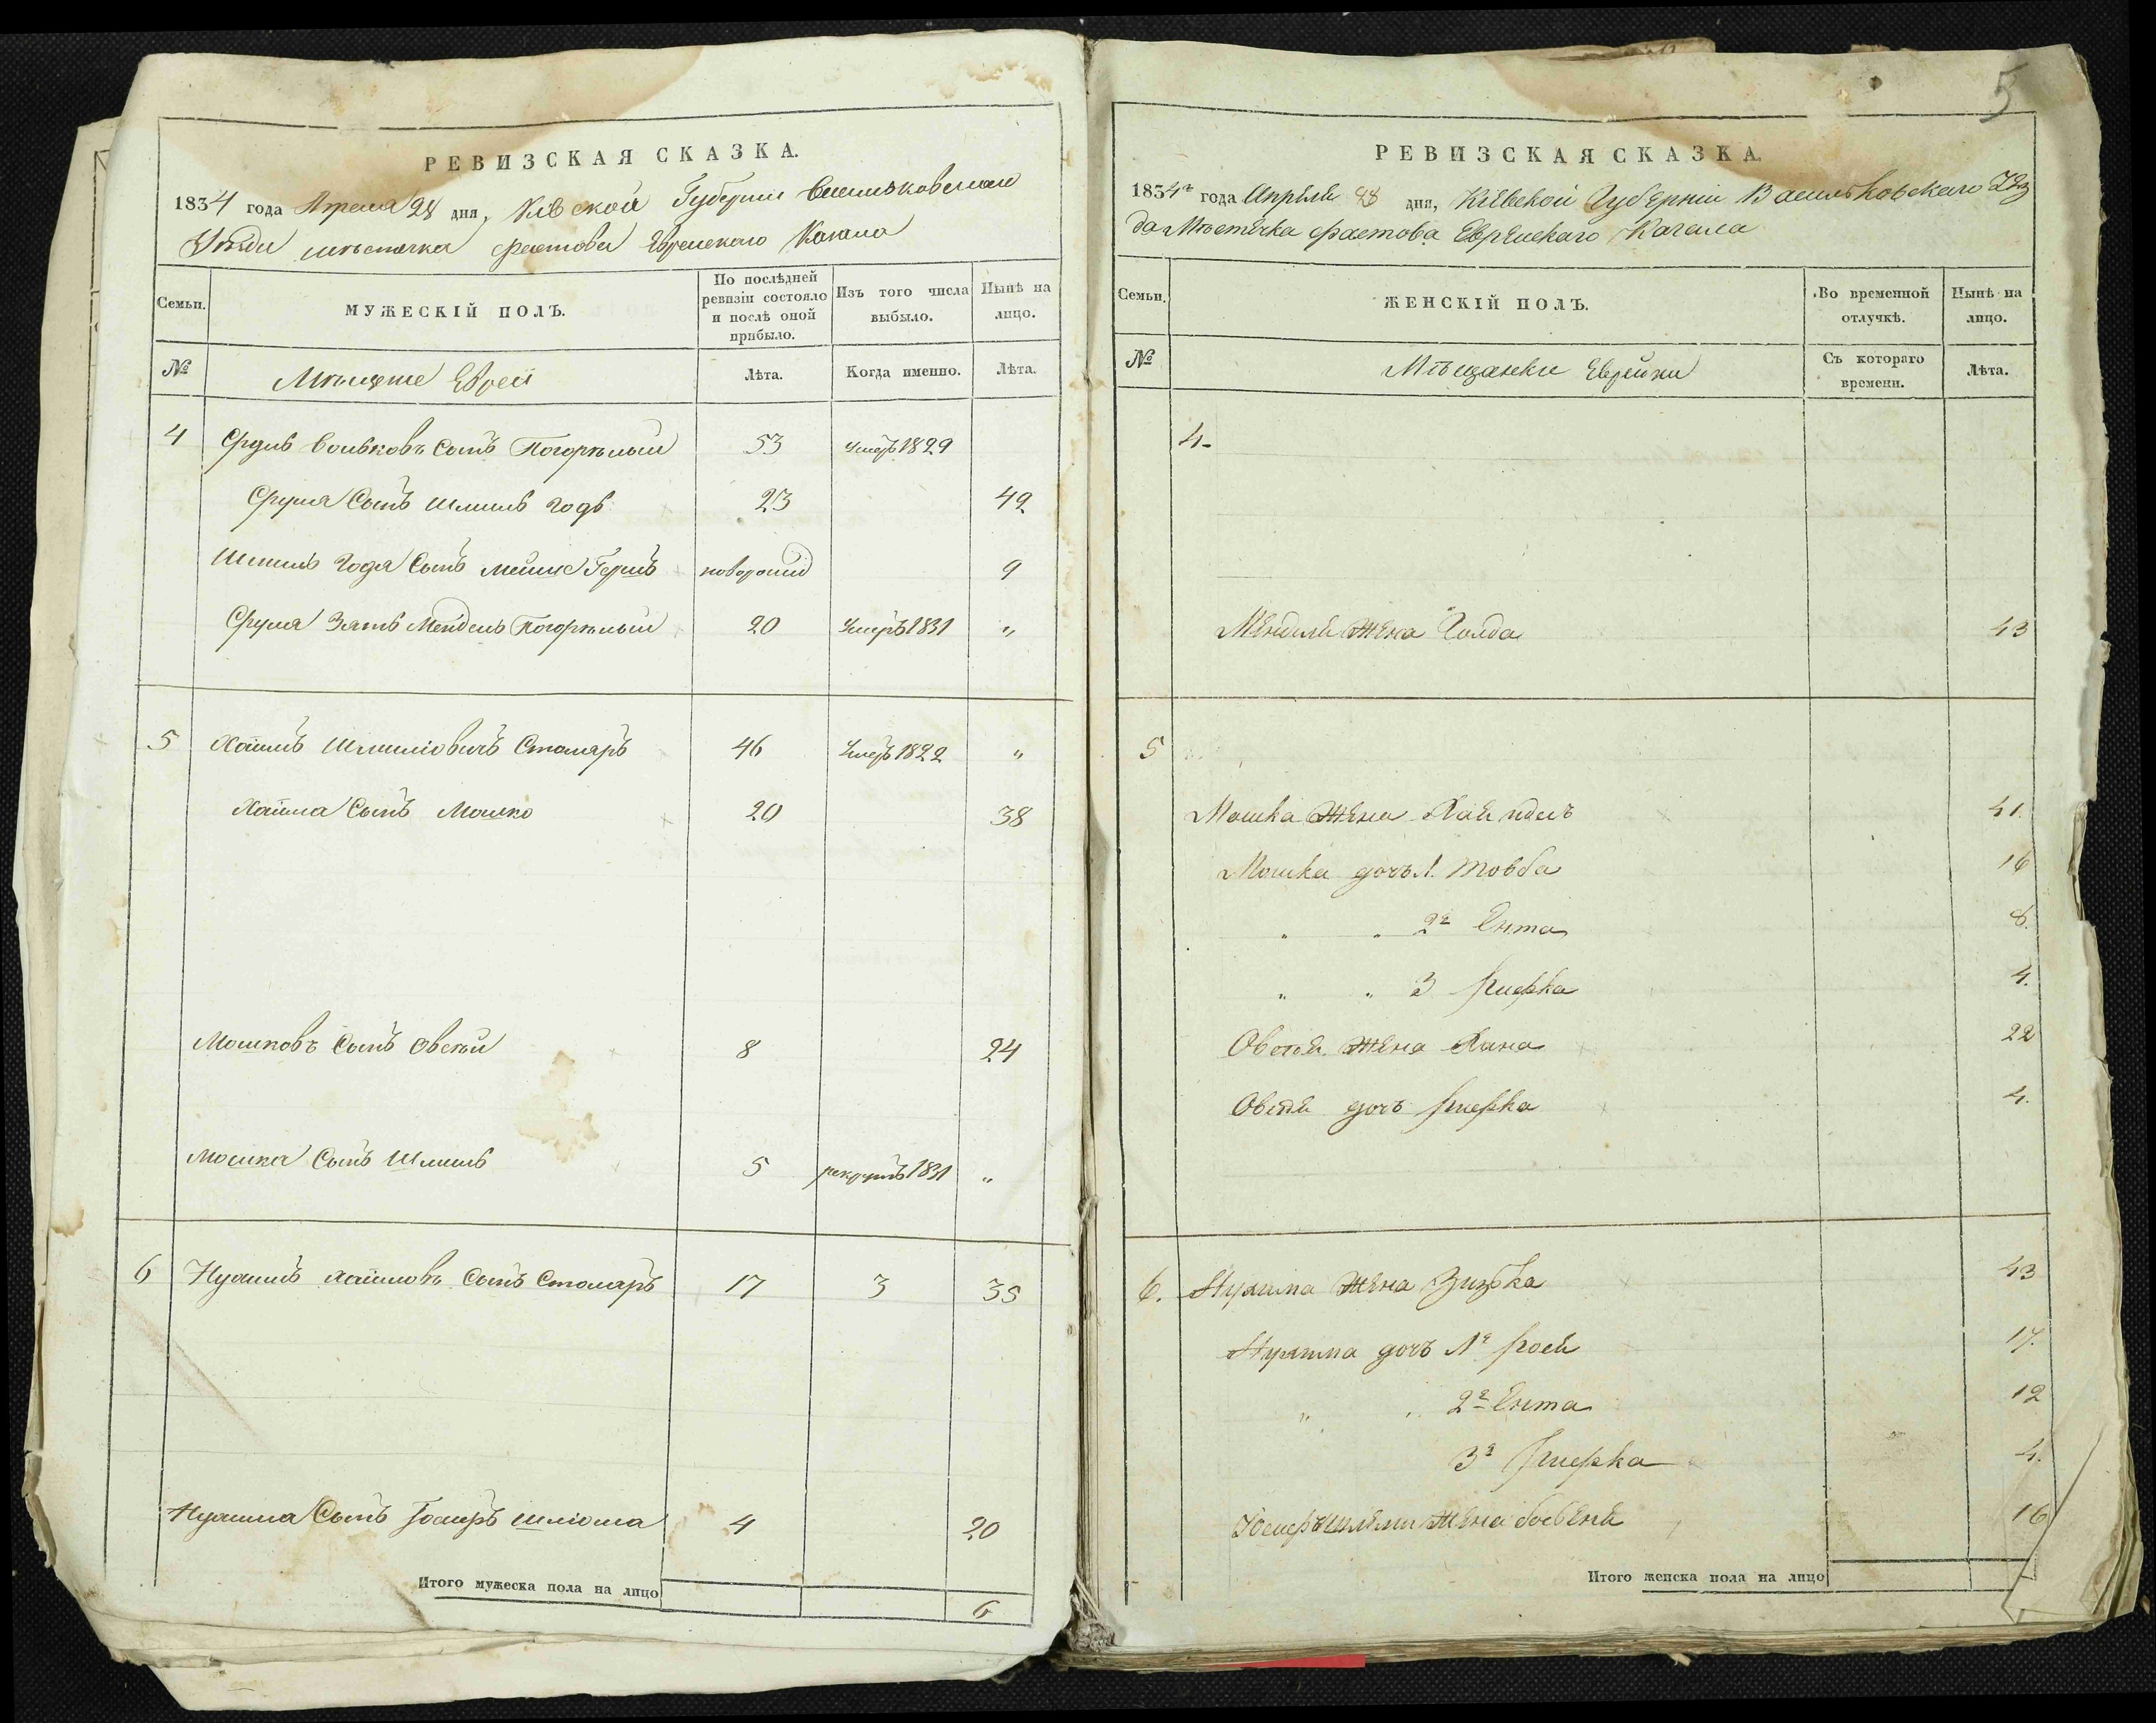 РЕВИЗСКАЯ СКАЗКА.
1834 года Апреля 28 дня, Кіевской Губерніи Васильковскаго
Уезда местечка Фастова Еврейскаго Кагала
Семьи.
МУЖЕСКІЙ ПОЛЪ.
По послѣдней ревизіи состояло и послѣ оной прибыло.
Изъ того числа выбыло.
Нынѣ на лицо.
№
Мещане Евреи
Лѣта.
Когда именно.
Лѣта.
4 Сруль Вольковъ Сынъ Погорелый 53 умеръ 1829
Сруля Сынъ Шмиль 23 49
Шмиля Сынъ Гершъ новорож 9
Сруля Зять Мендель Погорелый 20 умеръ 1831 "
5 Хаимъ Шмиліовичъ Столяръ 46 умеръ 1822 "
Хаима Сынъ Мошко 20 38
Мошковъ Сынъ Овсей 8 24
Мошка Сынъ Шмиль 5 рекрутъ 1831 "
6 Нухимъ Хаимовъ Сынъ Столяръ 17 3 35
Нухима Сынъ Шліома 4 20
Итого мужеска пола на лицо
6
5
РЕВИЗСКАЯ СКАЗКА.
1834 года Апреля 28 дня, Кіевской Губерніи Васильковскаго Уез
да Местечка Фастова Еврейскаго Кагала
Семьи.
ЖЕНСКІЙ ПОЛЪ.
Во временной отлучкѣ.
Нынѣ на лицо.
№
Мещанки Еврейки
Съ котораго времени.
Лѣта.
4
Менделя Жена Голда 43
5
Мошка Жена 41
Мошка дочь 1. Товба 16
" " 2я Ента 8.
" " 3 Ривка 4.
Овсея Жена Хана 22
Овсея дочь Ривка 4.
6. Нухима Жена 43
Нухима дочь 1я 17.
" " 2я Ента 12
3я Ривка 4.
Жена 16
Итого женска пола на лицо